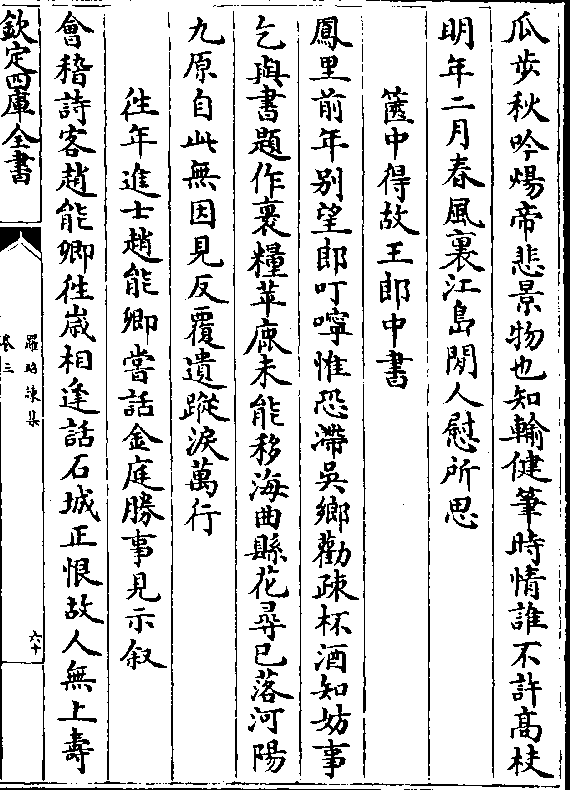 瓜歩秋吟煬帝悲景物也知輸健筆時情誰不許髙枝
明年二月春風裏江島閒人慰所思
篋中得故王郎中書
鳳里前年别望郎叮嚀惟恐滯吳鄉勸疎杯酒知妨事
乞與書題作裹糧苹鹿未能移海曲縣花尋已落河陽
九原自此無因見反覆遺蹤淚萬行
徃年進士趙能卿嘗話金庭勝事見示叙
㑹稽詩客趙能卿徃嵗相逢話石城正恨故人無上夀
欽定四庫全書
羅昭諫集
卷三
六十